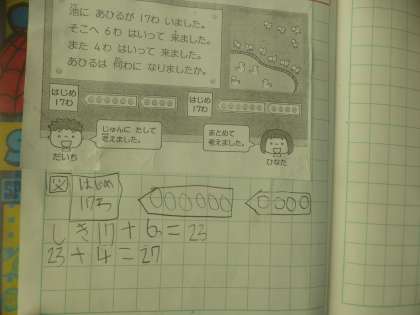 池に あひるが 17わ いました。
そこへ 6わ はいって 来ました。
また 4わ はいって 来ました。
あひるは 何わに なりましたか。
はじめ
17わ
はじめ
17わ
じゅんに たして
考えました。
まとめて
考えました。
だいち
ひなた
図
はじめ
17わ
しき17+6=23
23+4=27